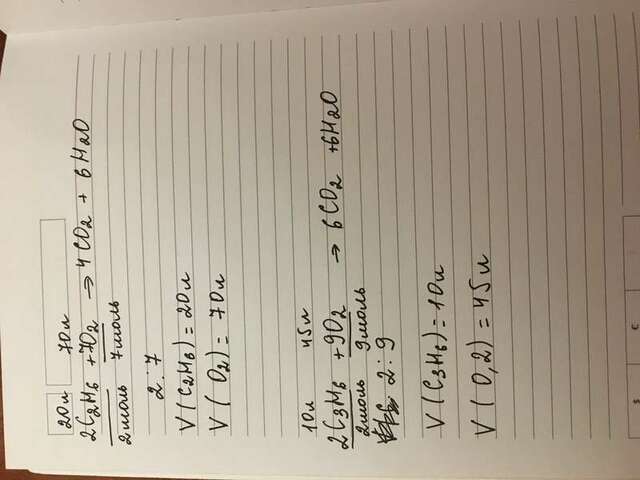 20л 70л
2C2H6 + 7O2 → 4CO2 + 6H2O
2моль 7моль
2 : 7
V(C2H6) = 20л
V(O2) = 70л
10л 45л
2C3H6 + 9O2 → 6CO2 + 6H2O
2моль 9моль
2 : 9
V(C3H6) = 10л
V(O,2) = 45л
S E